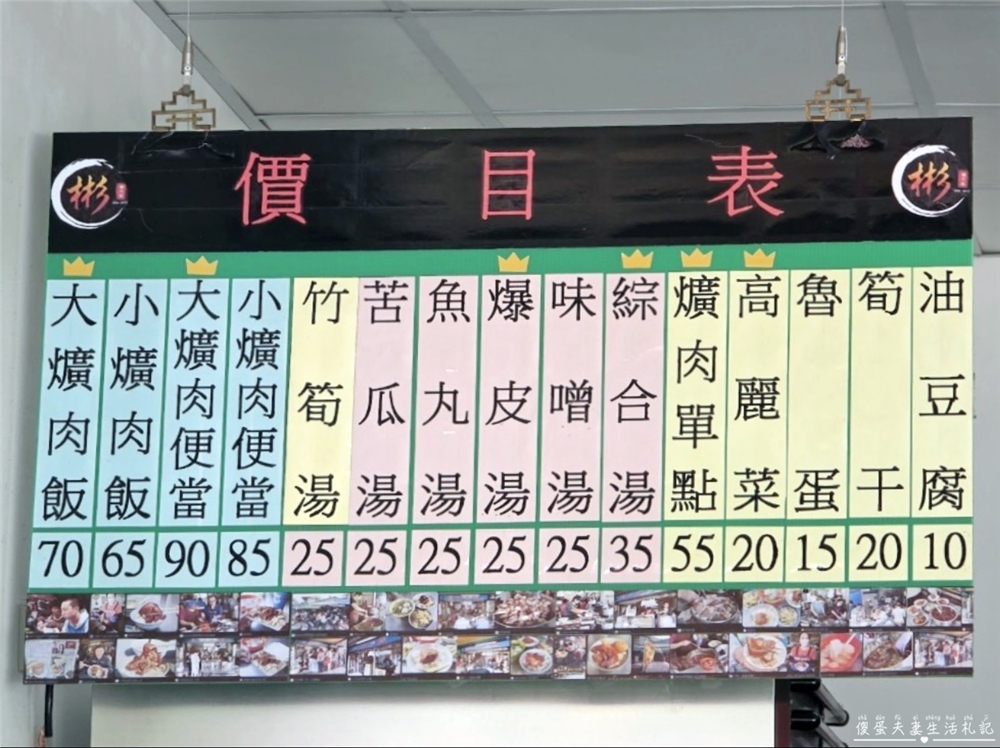 價目表
彬
彬
大爌肉飯 70
小爌肉飯 65
大爌肉便當 90
小爌肉便當 85
竹筍湯 25
苦瓜湯 25
魚丸湯 25
爆皮湯 25
味噌湯 25
綜合湯 35
爌肉單點 55
高麗菜 20
魯蛋 15
筍干 20
油豆腐 10
傻蛋夫妻生活札記